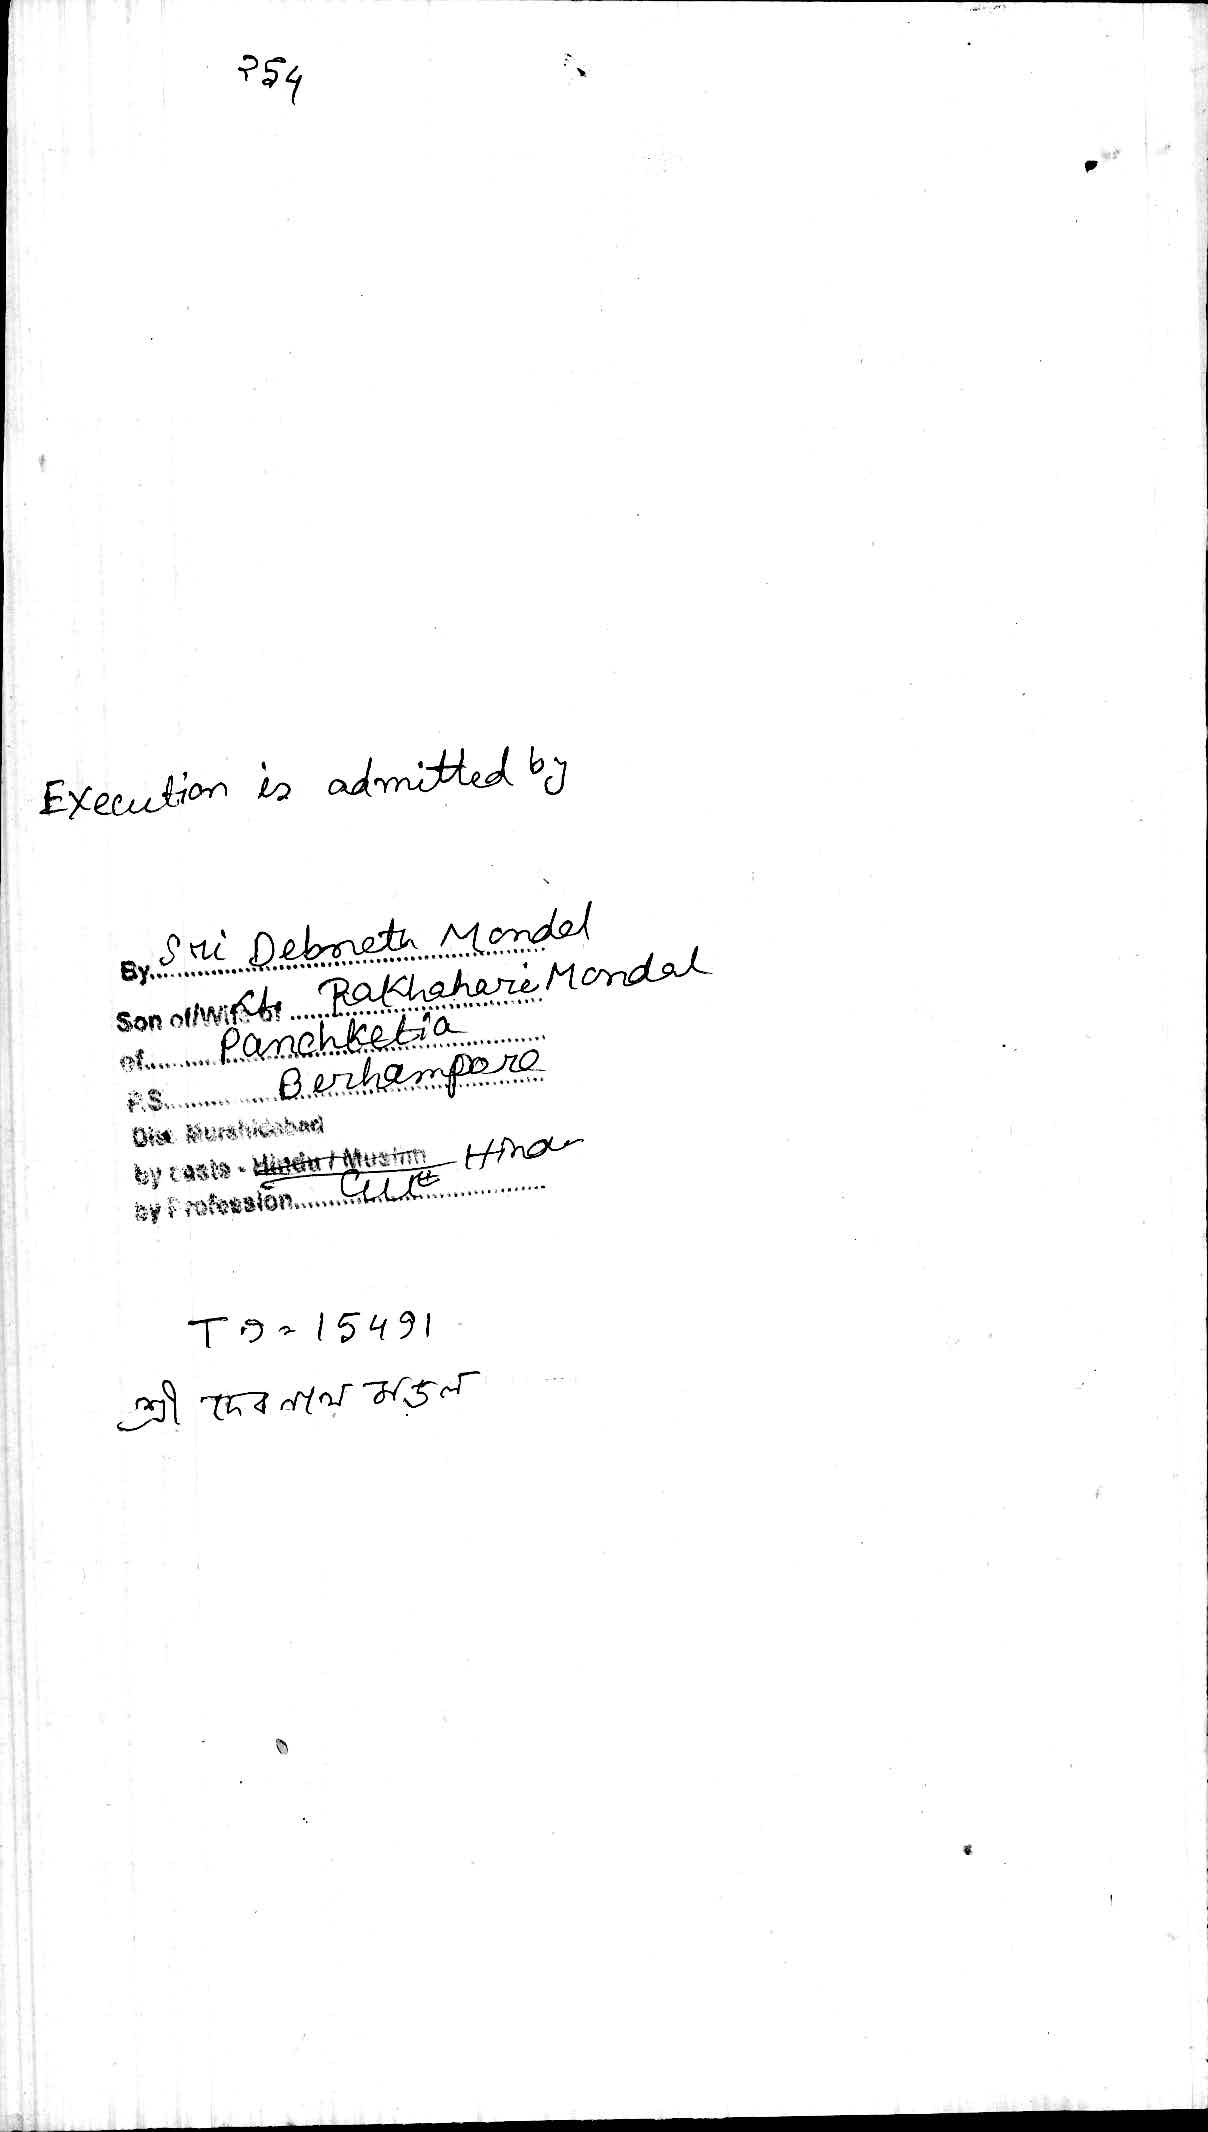 Execution is admitted by
By Sri Debnath Mondal
Son of/Wife of Rakhahari Mondal
of Panchketia
P.S. Berhampore
Dist Murshidabad
by caste - Hindu / Muslim Hindu
by Profession Cult
15491
শ্রী দেবনাথ মন্ডল